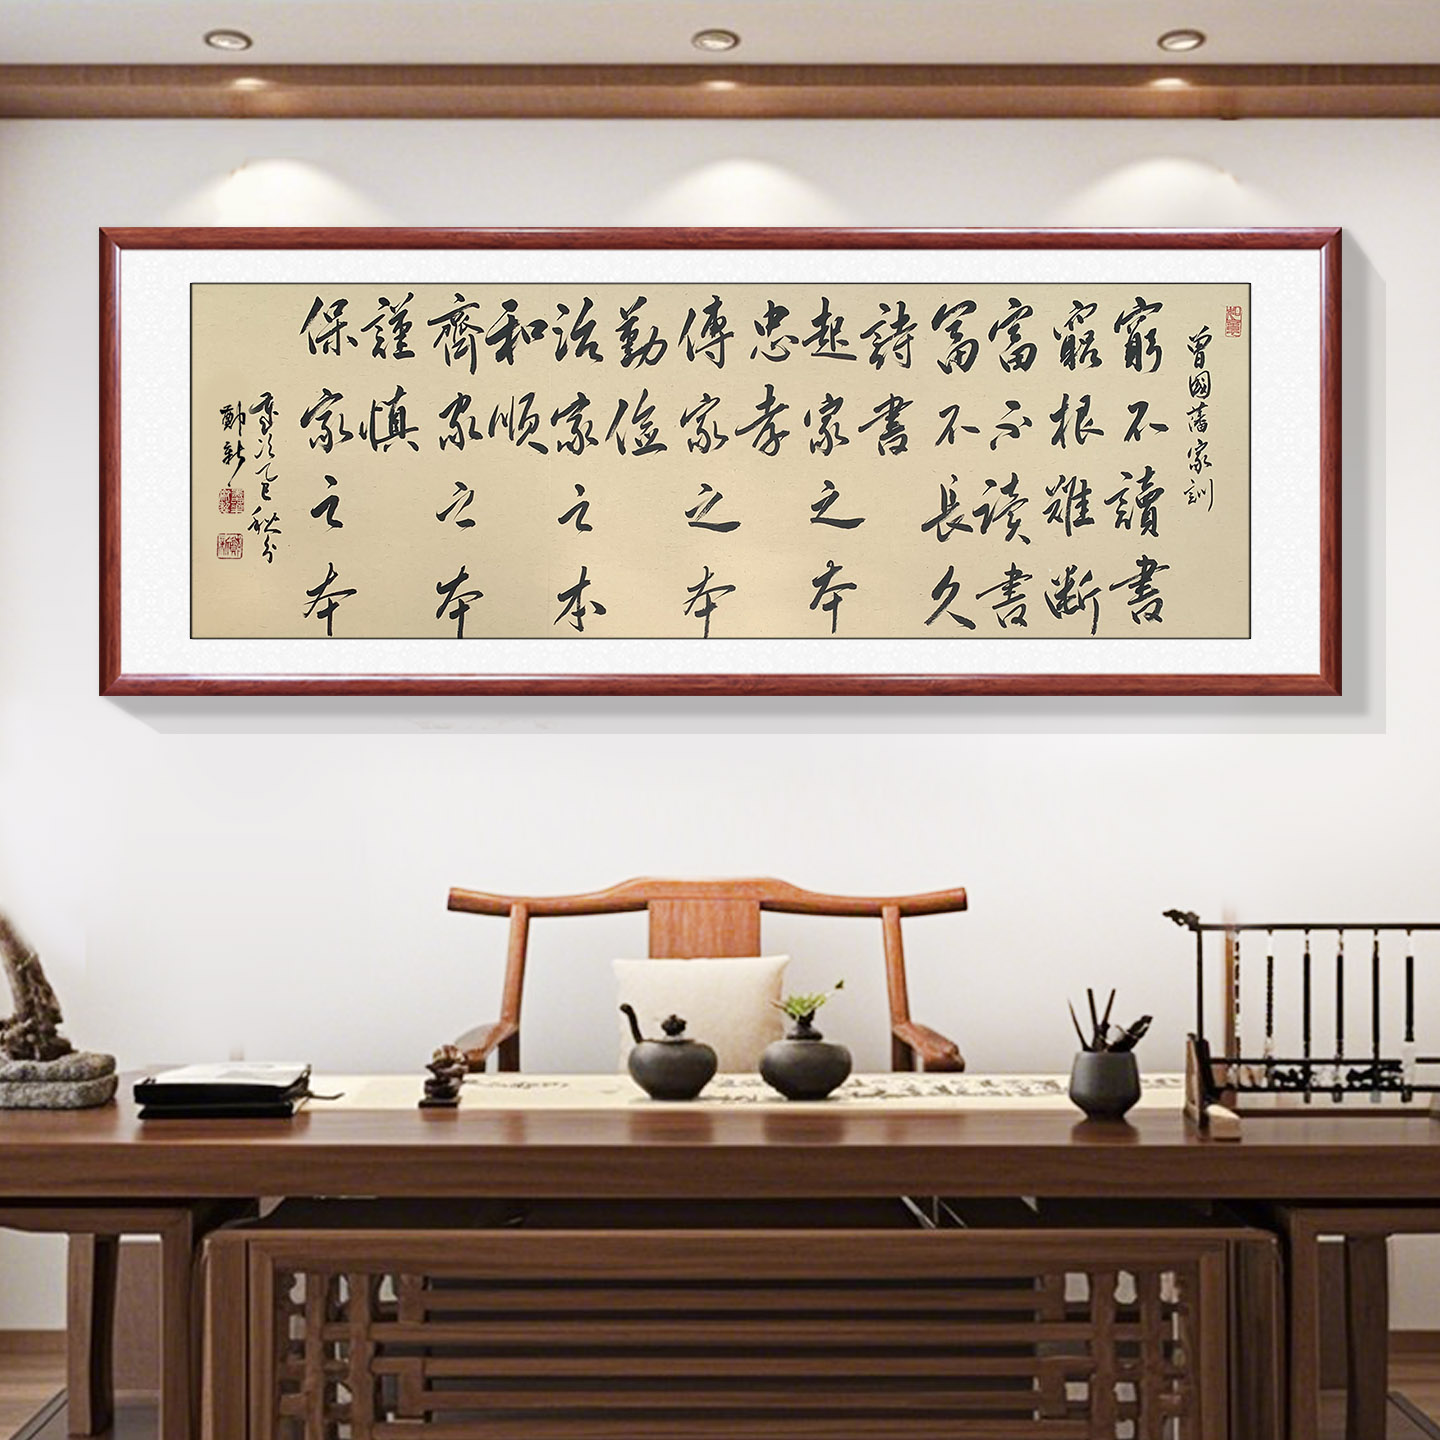 曾國藩家訓
窮不讀書
窮根難斷
富不读書
富不長久
詩書
起家之本
忠孝
傳家之本
勤儉
治家之本
和順
齊家之本
謹慎
保家之本
歲次乙巳秋分
鄭新